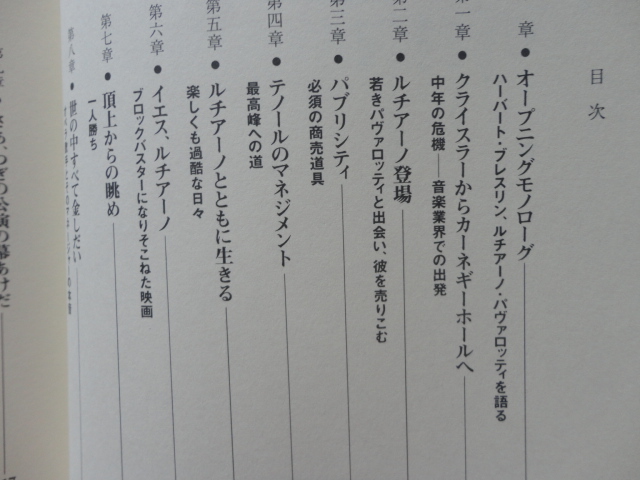 目次
章●オープニングモノローグ
ハーバート・ブレスリン、ルチアーノ・パヴァロッティを語る
第一章●クライスラーからカーネギーホールへ
中年の危機──音楽業界での出発
第二章●ルチアーノ登場
若きパヴァロッティと出会い、彼を売りこむ
第三章●パブリシティ
必須の商売道具
第四章●テノールのマネジメント
最高峰への道
第五章●ルチアーノとともに生きる
楽しくも過酷な日々
第六章●イエス、ルチアーノ
ブロックバスターになりそこねた映画
第七章●頂上からの眺め
一人勝ち
第八章●世の中すべて金しだい
さあ、つぎの公演の幕あけだ